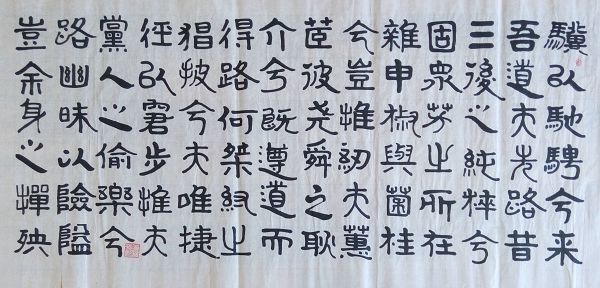 驥以馳騁兮来
吾道夫先路昔
三後之純粹兮
固眾芳之所在
雜申椒與菌桂
兮豈惟紉夫蕙
茞彼堯舜之耿
介兮既遵道而
得路何桀紂之
猖披兮夫唯捷
徑以窘步惟夫
黨人之偷樂兮
路幽昧以險隘
豈余身之憚殃